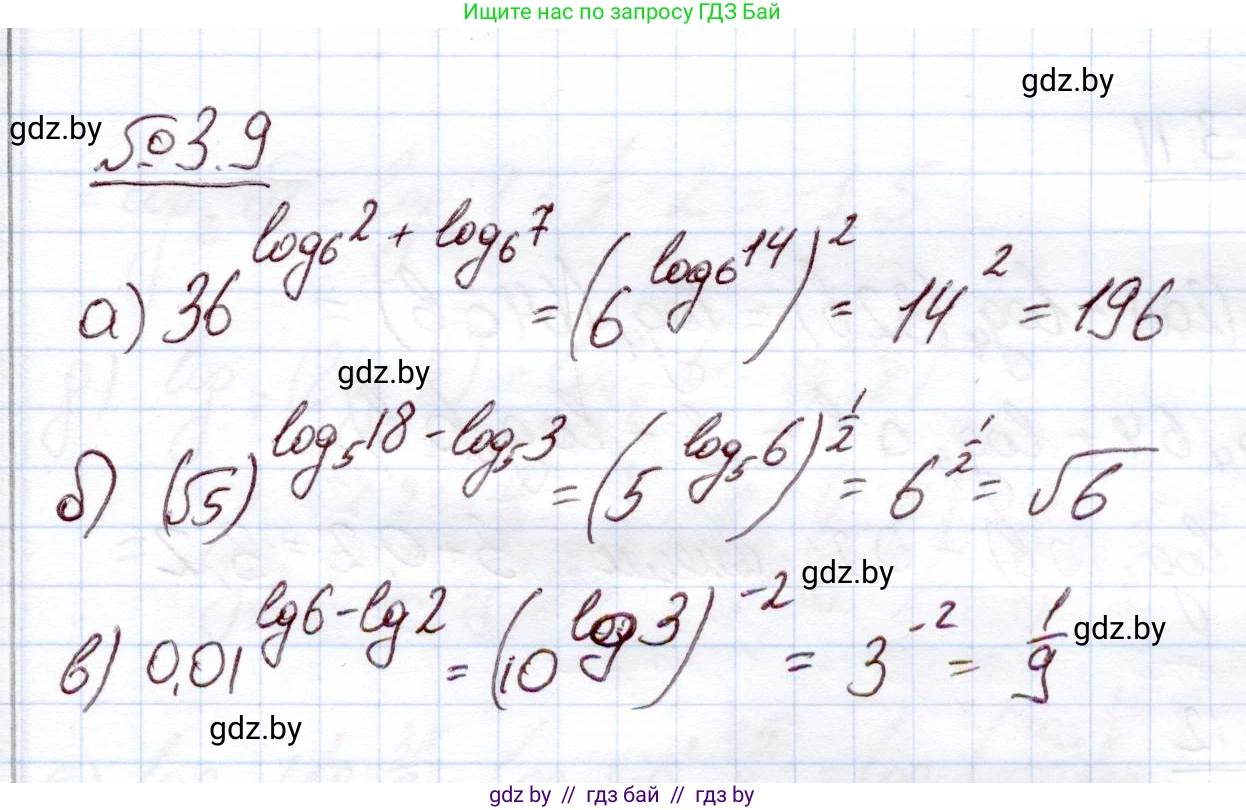 Ищите нас по запросу ГДЗ Бай
gdz.by
gdz.by
№ 3.9
а) 36^(log₆2 + log₆7) = (6^(log₆14))² = 14² = 196
gdz.by
б) (√5)^(log₅18 - log₅3) = (5^(log₅6))^(1/2) = 6^(1/2) = √6
gdz.by
в) 0,01^(lg6 - lg2) = (10^(log3))^(-2) = 3^(-2) = 1/9
gdz.by
gdz.by
gdz.by // гдз бай // gdz by